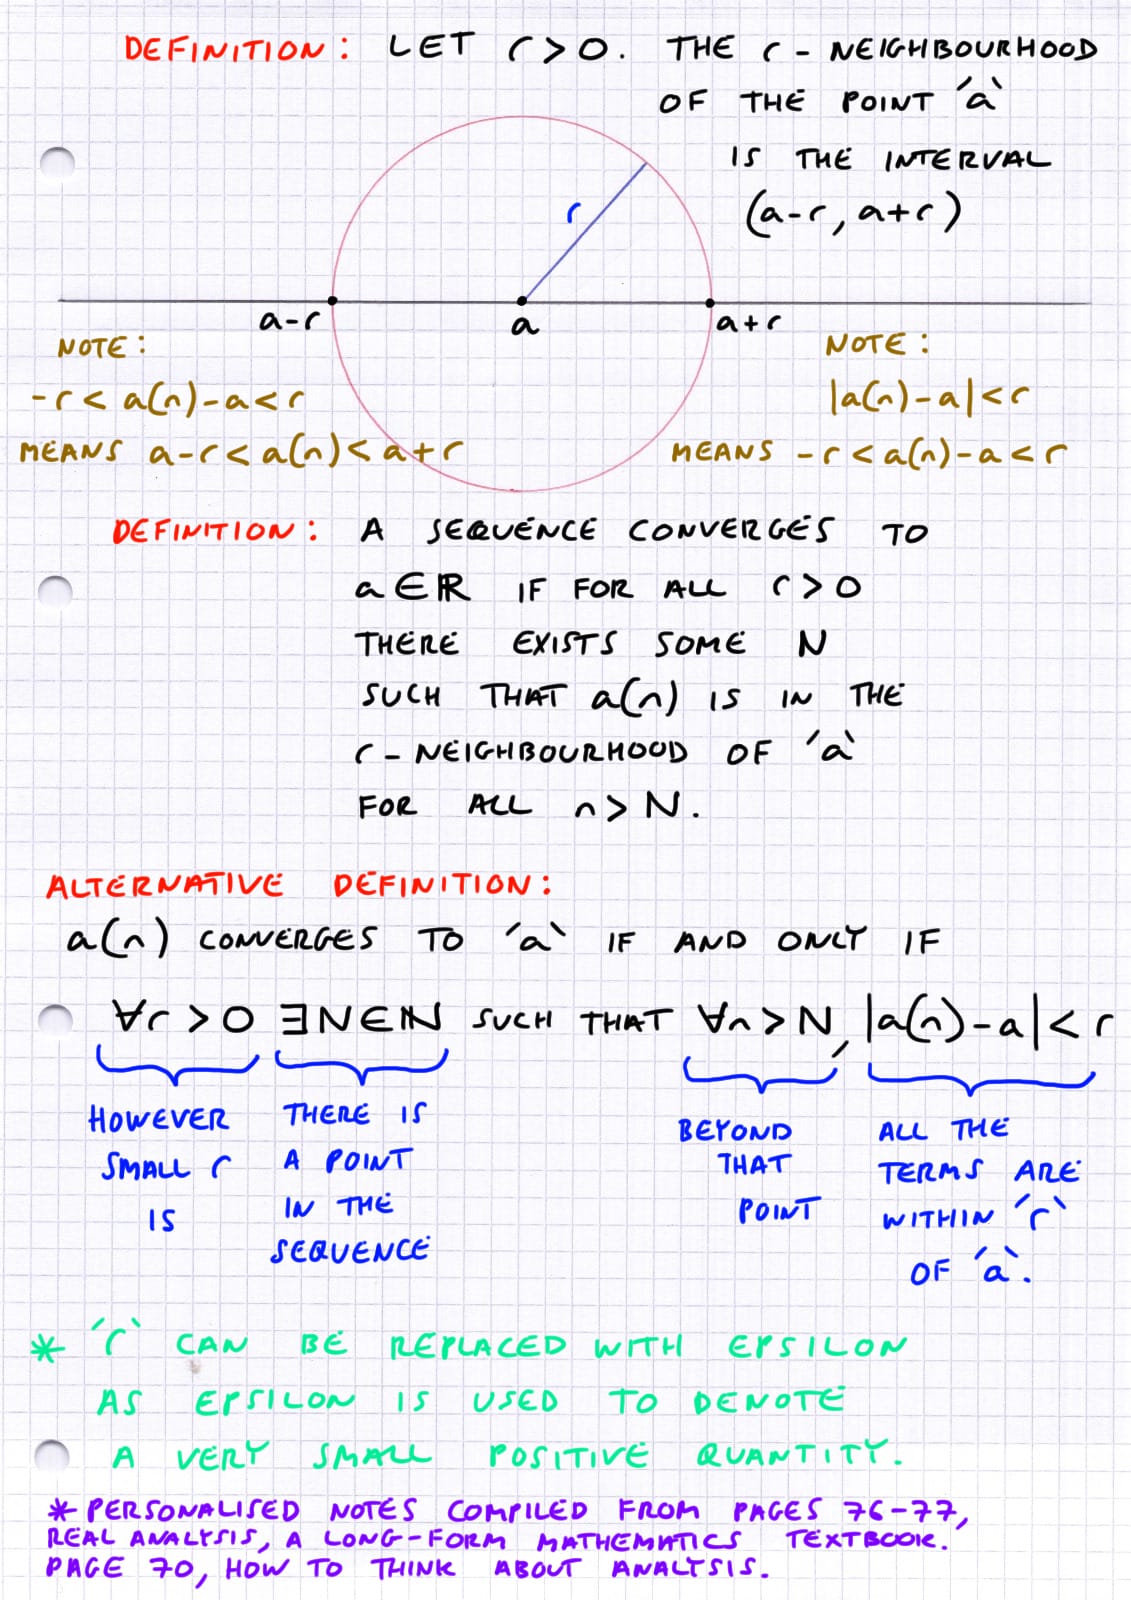 DEFINITION: LET r > 0. THE r - NEIGHBOURHOOD
OF THE POINT 'a`
IS THE INTERVAL
(a-r, a+r)
r
a-r
a
a+r
NOTE:
-r < a(n)-a < r
MEANS a-r < a(n) < a+r
NOTE:
|a(n)-a| < r
MEANS -r < a(n)-a < r
DEFINITION: A SEQUENCE CONVERGES TO
a ∈ ℝ IF FOR ALL r > 0
THERE EXISTS SOME N
SUCH THAT a(n) IS IN THE
r - NEIGHBOURHOOD OF 'a`
FOR ALL n > N.
ALTERNATIVE DEFINITION:
a(n) CONVERGES TO 'a` IF AND ONLY IF
∀r > 0 ∃N∈ℕ SUCH THAT ∀n > N, |a(n)-a| < r
HOWEVER
SMALL r
IS
THERE IS
A POINT
IN THE
SEQUENCE
BEYOND
THAT
POINT
ALL THE
TERMS ARE
WITHIN 'r`
OF 'a`.
* 'r` CAN BE REPLACED WITH EPSILON
AS EPSILON IS USED TO DENOTE
A VERY SMALL POSITIVE QUANTITY.
* PERSONALISED NOTES COMPILED FROM PAGES 76-77,
REAL ANALYSIS, A LONG-FORM MATHEMATICS TEXTBOOK.
PAGE 70, HOW TO THINK ABOUT ANALYSIS.